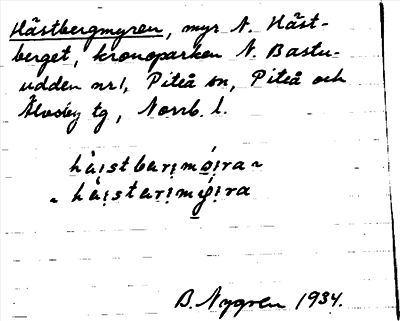 Hästbergmyren, myr N. Häst-
berget, kronoparken N. Bastu-
udden nr 1, Piteå sn, Piteå och
Älvsby tg, Norrb. l.
hàịstbarịmǿịra ~
~ hàịstarịmǿịra
B. Nygren 1934.